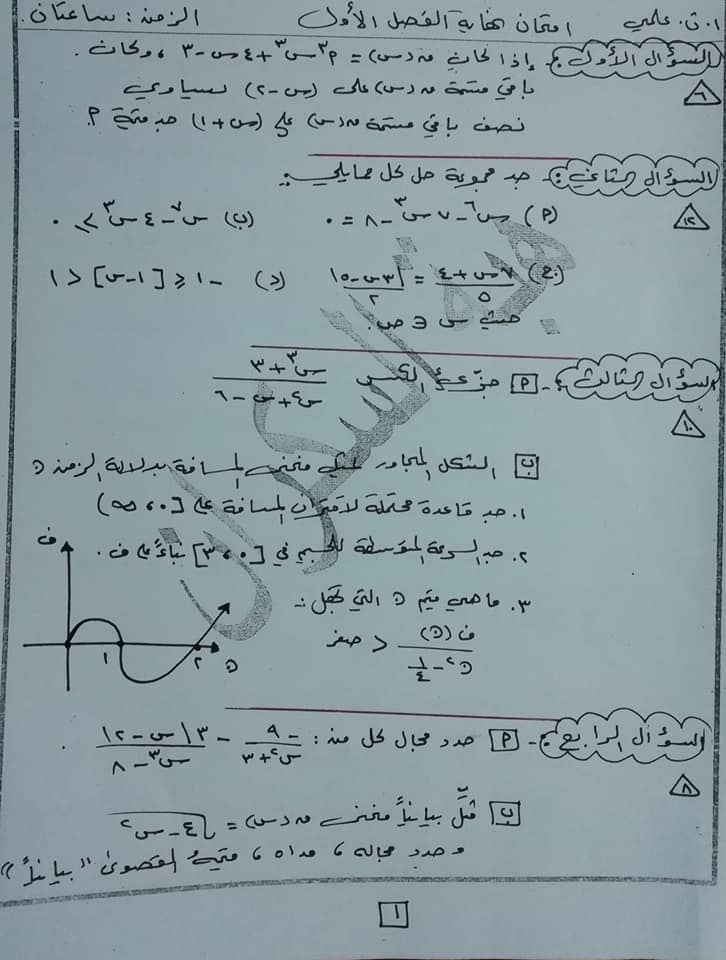 ١. ث. علمي امتحان نهاية الفصل الأول الزمن : ساعتان
السؤال الأول : إذا كان ق(س) = م٣س٣ + ٤س - ٣ ، وكان
٦ باقي قسمة ق(س) على (س-٢) يساوي
نصف باقي قسمة ق(س) على (س+١) جد قيمة م
السؤال الثاني : جد مجموعة حل كل مما يلي :
١٢ (أ) س٦ - ٧س٣ - ٨ = ٠ (ب) س٧ - ٤س٣ ≥ ٠
(ج) ٧س+٤ / ٥ = |٣س-٥| / ٢ (د) -١ ≤ [١-س] < ١
حيث س ∈ ص.
السؤال الثالث : أ - جزّئ الكسر س٣+٣ / س٢+س-٦
١٠
ب الشكل المجاور يمثل منحنى المسافة بدلالة الزمن ن
١. جد قاعدة محتملة لاقتران المسافة على [٠، ∞)
٢. جد السرعة المتوسطة للجسم في [٠، ٣] بناءً على ف.
٣. ما هي قيم ن التي تجعل :
ف(ن) / ن٢ - ١/٤ < صفر
ف
١ ٢ ن
السؤال الرابع : أ - حدد مجال كل من : ٩- / س٢+٣ - ٣|س-١٢ / س٣-٨
٨
ب مثّل بيانياً منحنى ق(س) = √٤-س٢
وحدد مجاله ، مداه ، قيمهُ القصوى "بيانياً"
١
هبة السكران